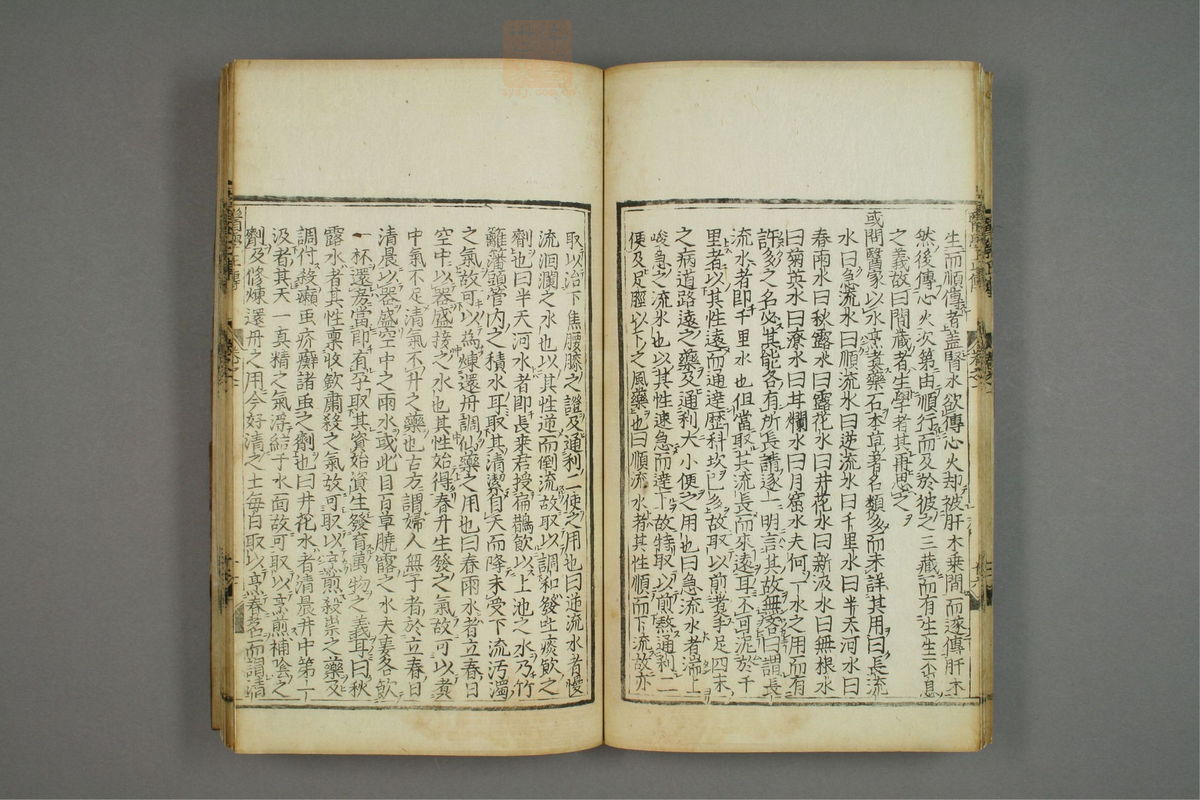 生而順傳者蓋腎水欲傳心火却被肝木乗間而遂傳肝木
然後傳心火次第由順行而及於彼之三藏而有生生不息
之義故曰間藏者生學者其再思之
或問醫家以水烹煮藥石本草著名類多而未詳其用曰長流
水曰急流水曰順流水曰逆流水曰千里水曰半天河水曰
春雨水曰秋露水曰露花水曰井花水曰新汲水曰無根水
曰菊英水曰潦水曰甘爛水曰月窟水夫何一水之用而有
許多之名必其能各有所長請逐一明言其故無吝曰謂長
流水者即千里水也但當取其流長而來遠耳不可泥於千
里者以其性遠而通達歷科坎已多故取以煎煮手足四末
之病道路遠之藥及通利大小便之用也曰急流水者湍上
峻急之流水也以其性速急而達下故特取以煎熬通利二
便及足脛以下之風藥也曰順流水者其性順而下流故亦
取以治下焦腰膝之證及通利二便之用也曰逆流水者慢
流洄瀾之水也以其性逆而倒流故取以調和發吐痰飲之
劑也曰半天河水者即長桒君授扁鵲飲以上池之水乃竹
籬藩頭管内之積水耳取其清潔自天而降未受下流汚濁
之氣故可以為煉還丹調仙藥之用也曰春雨水者立春日
空中以器盛接之水也其性始得春升生發之氣故可以煮
中氣不足清氣不升之藥也古方謂婦人無子者於立春日
清晨以器盛空中之雨水或此日百草曉露之水夫妻各飲
一杯還房當即有孕取其資始資生發育萬物之義耳曰秋
露水者其性稟收歛肅殺之氣故可取以烹煎殺祟之藥及
調付殺癩虫疥癬諸虫之劑也曰井花水者清晨井中第一
汲者其天一真精之氣浮結于水面故可取以烹煎補陰之
劑及修煉還丹之用今好清之士毎日取以烹春茗而謂清